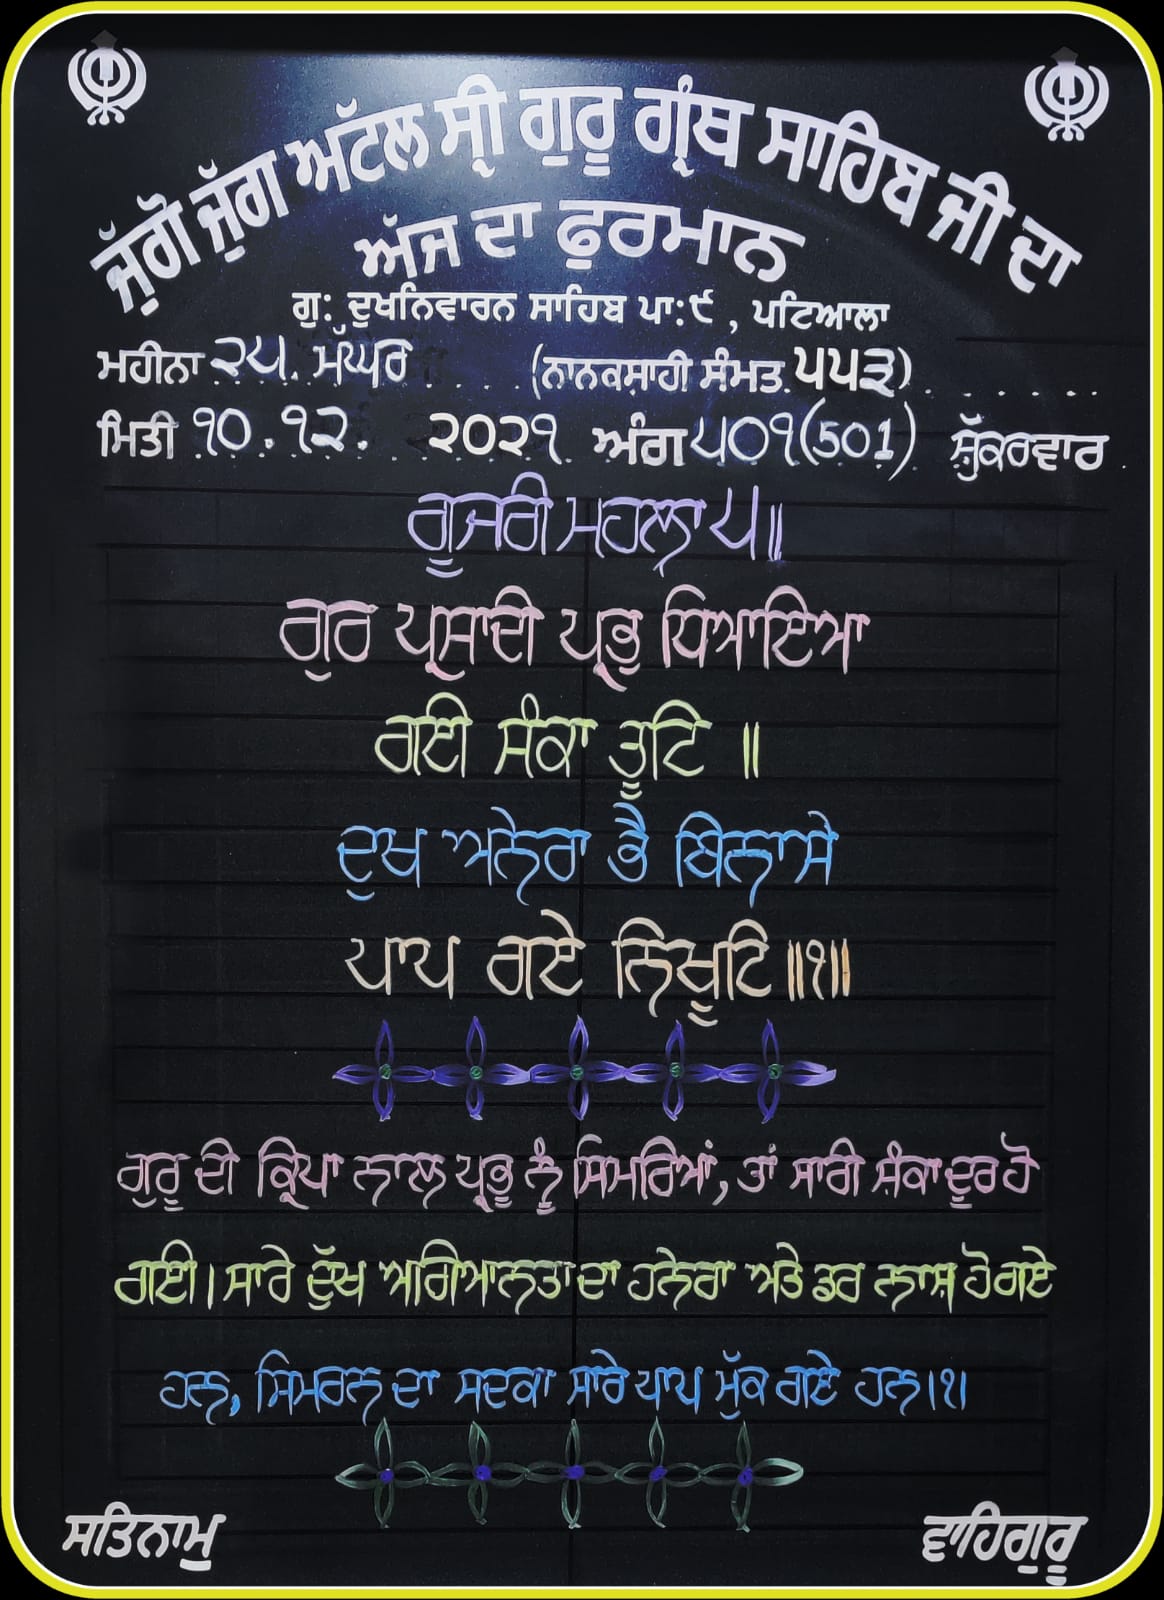 ਜੁੱਗੋ ਜੁੱਗ ਅਟੱਲ ਸ੍ਰੀ ਗੁਰੂ ਗ੍ਰੰਥ ਸਾਹਿਬ ਜੀ ਦਾ
ਅੱਜ ਦਾ ਫੁਰਮਾਨ
ਗੁ: ਦੁਖਨਿਵਾਰਨ ਸਾਹਿਬ ਪਾ:੯, ਪਟਿਆਲਾ
ਮਹੀਨਾ ੨੫. ਮੱਘਰ (ਨਾਨਕਸ਼ਾਹੀ ਸੰਮਤ ੫੫੩)
ਮਿਤੀ ੧੦.੧੨. ੨੦੨੧ ਅੰਗ ੫੦੧(501) ਸ਼ੁੱਕਰਵਾਰ
ਗੂਜਰੀ ਮਹਲਾ ੫॥
ਗੁਰ ਪ੍ਰਸਾਦੀ ਪ੍ਰਭੁ ਧਿਆਇਆ
ਗਈ ਸੰਕਾ ਤੂਟਿ ॥
ਦੁਖ ਅਨੇਰਾ ਭੈ ਬਿਨਾਸੇ
ਪਾਪ ਗਏ ਨਿਖੂਟਿ ॥੧॥
ਗੁਰੂ ਦੀ ਕ੍ਰਿਪਾ ਨਾਲ ਪ੍ਰਭੂ ਨੂੰ ਸਿਮਰਿਆਂ, ਤਾਂ ਸਾਰੀ ਸ਼ੰਕਾ ਦੂਰ ਹੋ
ਗਈ। ਸਾਰੇ ਦੁੱਖ ਅਗਿਆਨਤਾ ਦਾ ਹਨੇਰਾ ਅਤੇ ਡਰ ਨਾਸ਼ ਹੋ ਗਏ
ਹਨ, ਸਿਮਰਨ ਦਾ ਸਦਕਾ ਸਾਰੇ ਪਾਪ ਮੁੱਕ ਗਏ ਹਨ।੧।
ਸਤਿਨਾਮੁ ਵਾਹਿਗੁਰੂ